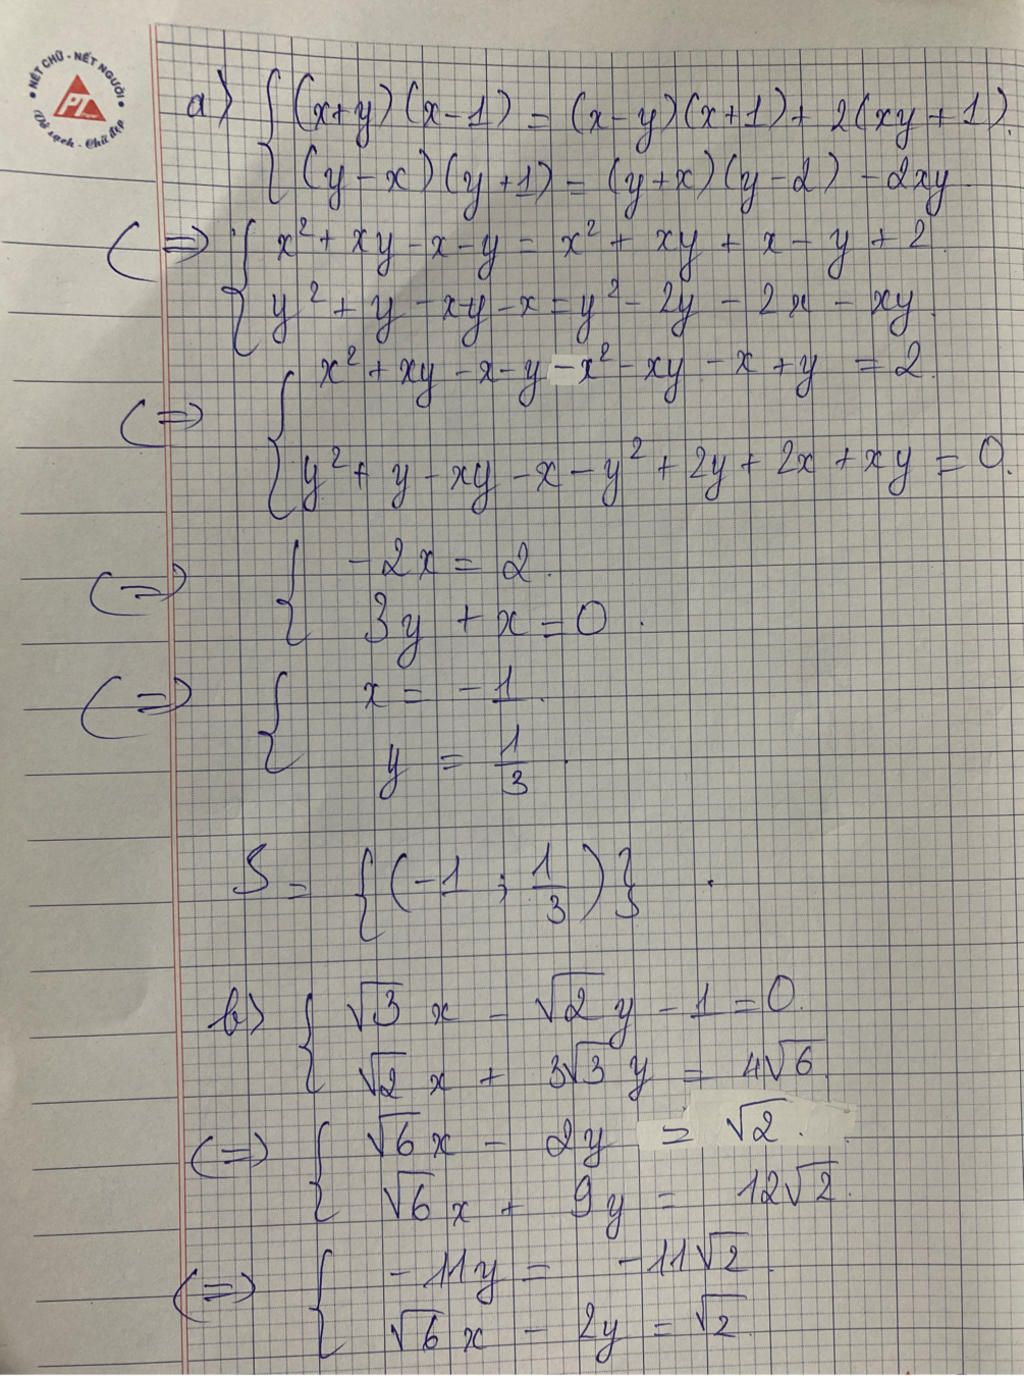 NÉT CHỮ - NẾT NGƯỜI
PL
Vở sạch - Chữ đẹp
a) { (x+y)(x-1) = (x-y)(x+1) + 2(xy+1).
(y-x)(y+1) = (y+x)(y-2) - 2xy
(=) { x² + xy - x - y = x² + xy + x - y + 2
y² + y - xy - x = y² - 2y - 2x - xy
(=) { x² + xy - x - y - x² - xy - x + y = 2
y² + y - xy - x - y² + 2y + 2x + xy = 0.
(=) { -2x = 2.
3y + x = 0.
(=) { x = -1.
y = 1/3.
S = {(-1 ; 1/3)}.
b) { √3 x - √2 y - 1 = 0.
√2 x + 3√3 y = 4√6.
(=) { √6 x - 2y = √2.
√6 x + 9y = 12√2.
(=) { -11y = -11√2
√6 x - 2y = √2